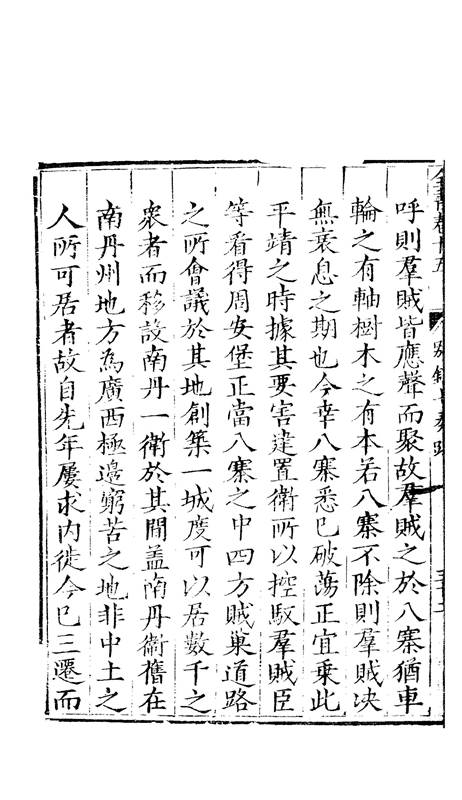 呼則羣賊皆應聲而聚故羣賊之於八寨猶車
輪之有軸樹木之有本若八寨不除則羣賊决
無衰息之期也今幸八寨悉已破蕩正宜乗此
平靖之時據其要害建置衛所以控馭羣賊臣
等看得周安堡正當八寨之中四方賊巢道路
之所會議於其地創築一城度可以居數千之
衆者而移設南丹一衛於其間盖南丹衛舊在
南丹州地方為廣西極邊窮苦之地非中土之
人所可居者故自先年屢求内徙今已三遷而